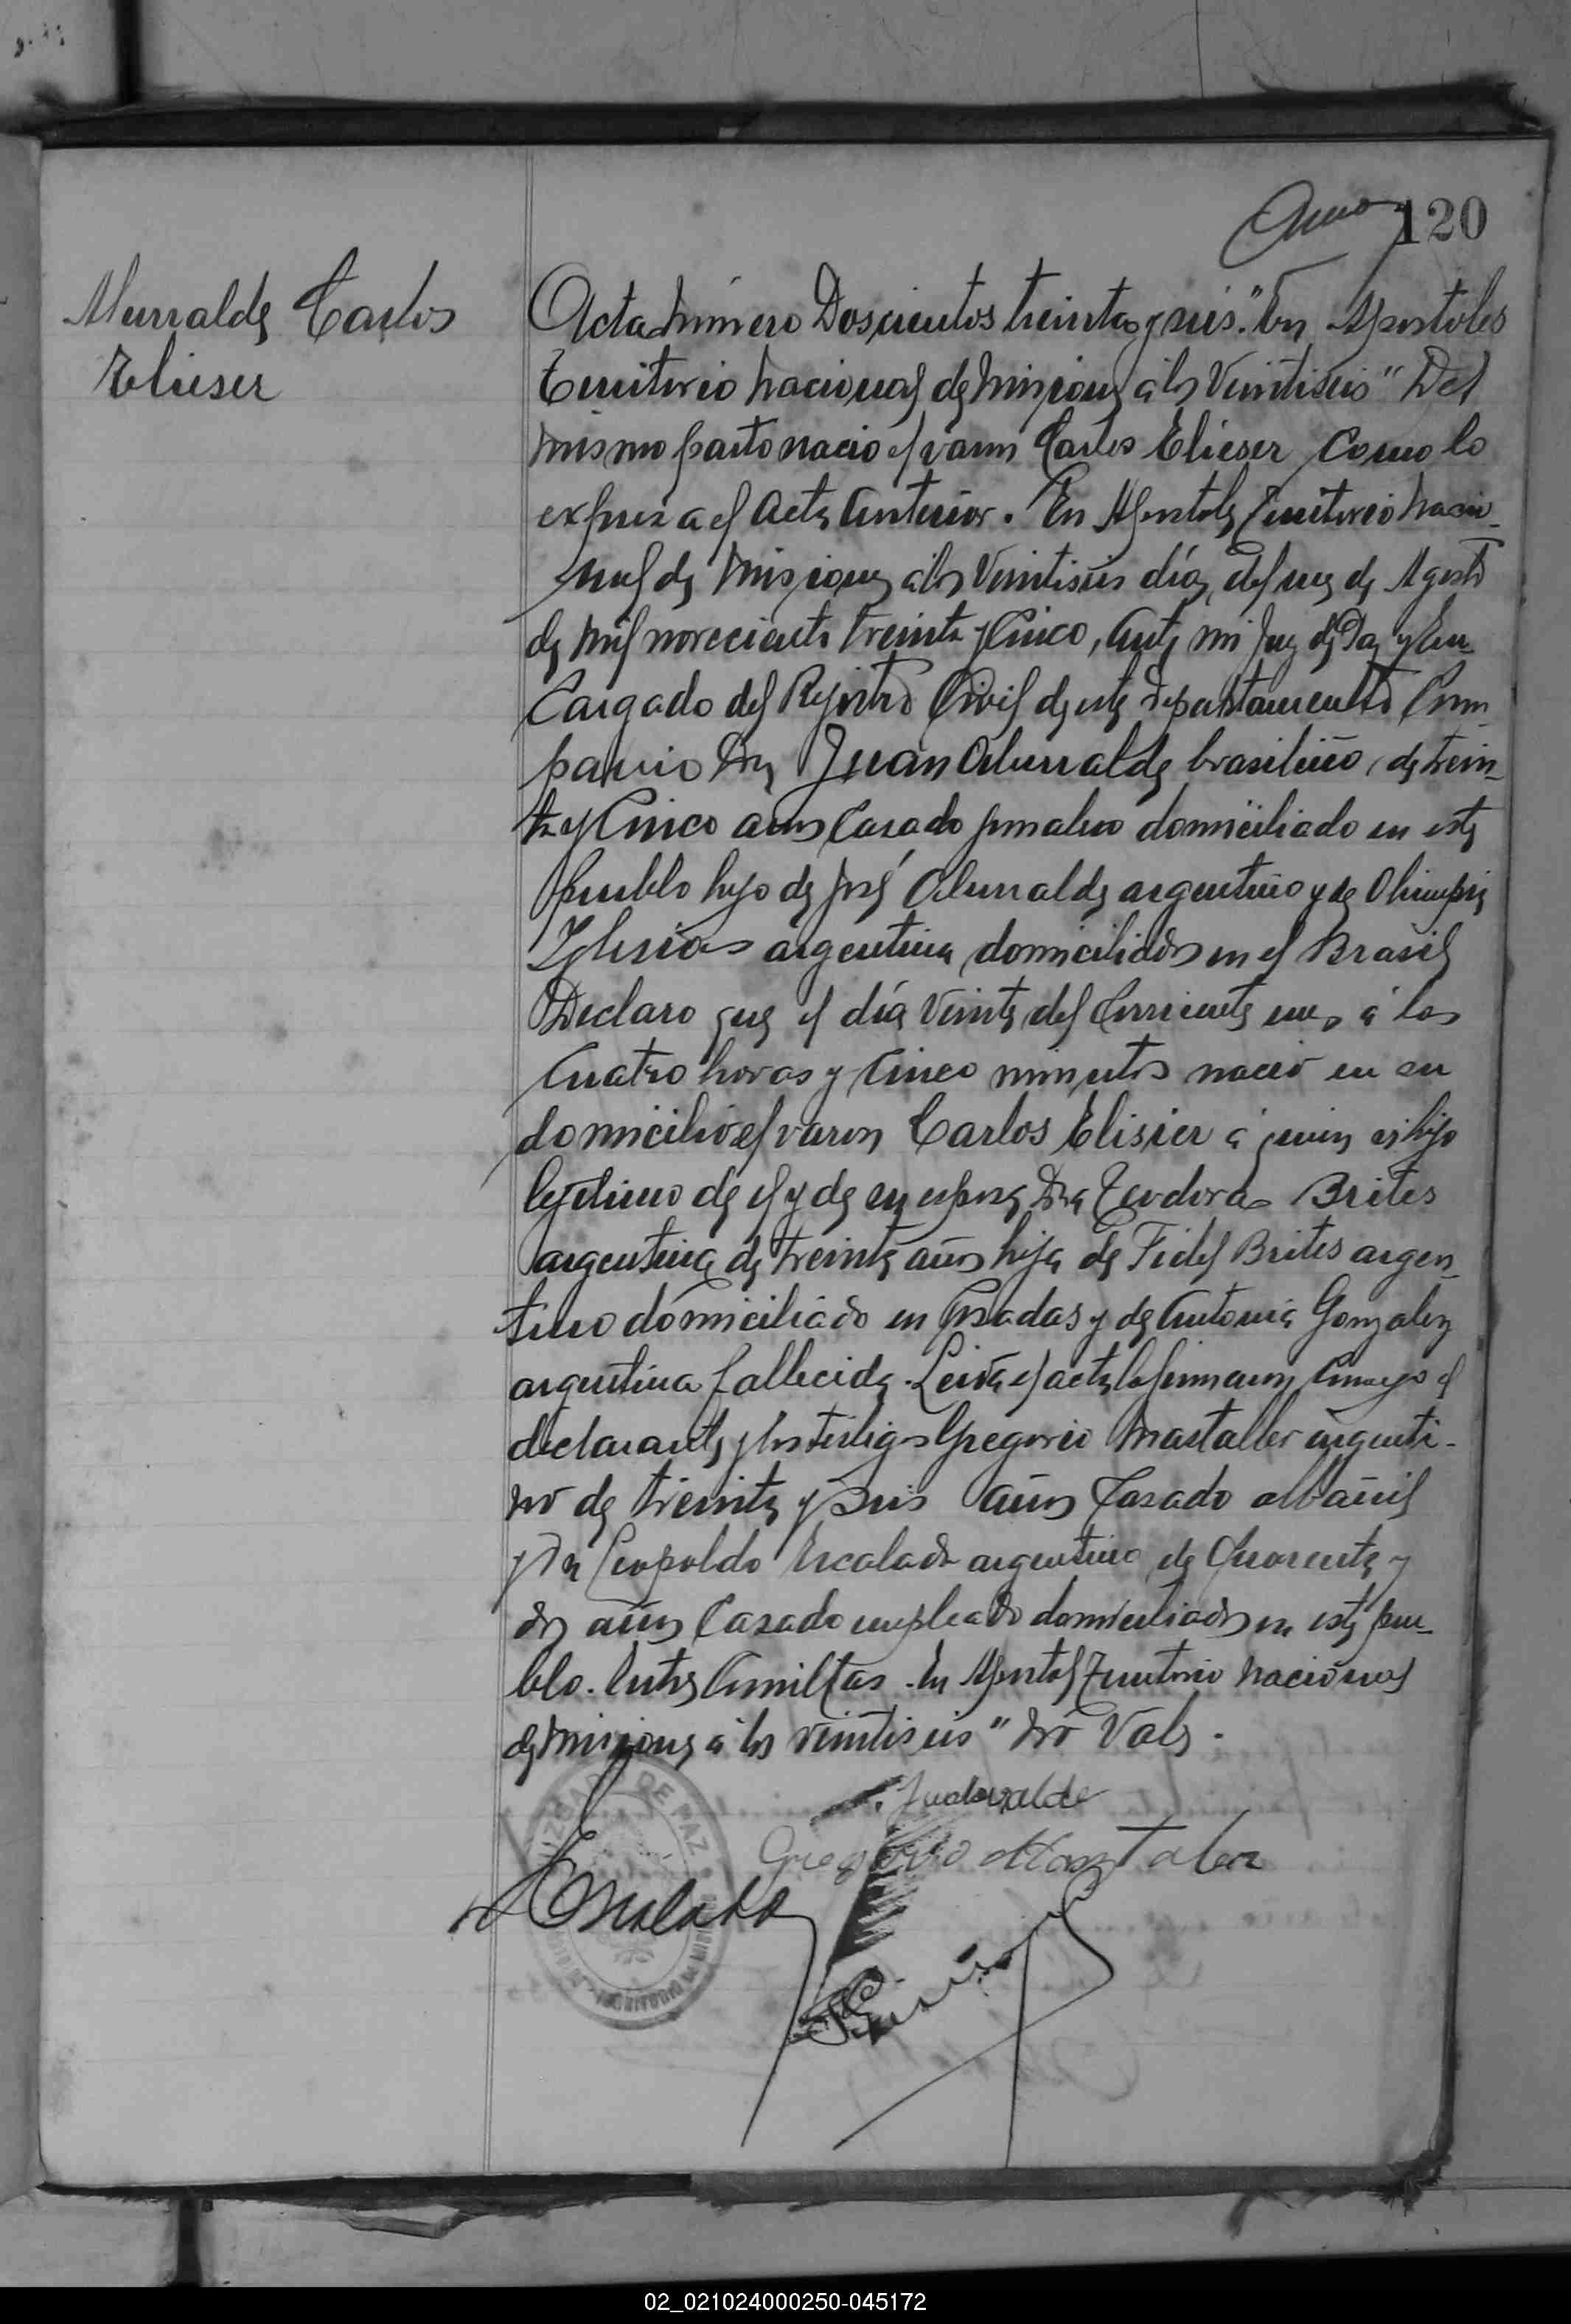 120
Alurralde Carlos
Elieser
Acta número Doscientos treinta y seis." En Apostoles
Territorio Nacional de Misiones á los Veintiseis" Del
mismo parto nació el varon Carlos Elieser Como lo
expresa el Acta Anterior. En Apostoles Territorio Nacio-
nal de Misiones á los Veintiseis días del mes de Agosto
de Mil novecientos treinta y Cinco, Ante mi Juez de Paz y En-
Cargado del Rejistro Civil de este Departamento Com-
parecio Don Juan Alurralde brasileño, de trein-
ta y Cinco años Casado jornalero domiciliado en este
pueblo hijo de José Alurralde argentino y de Olimpia
Iglesias argentina domiciliados en el Brasil
Declaro que el día Veinte del Corriente mes á las
Cuatro horas y Cinco minutos nació en su
domicilio el varon Carlos Elisier á quien es hijo
lejitimo de el y de su esposa Dna Teodora Brites
argentina de treinta años hija de Fidel Brites argen-
tino domiciliado en Posadas y de Antonia Gonzalez
argentina fallecida. Leida el acta la firmaron Conmigo el
declarante y los testigos Gregorio Mastaller argenti-
no de treinta y seis años Casado albañil
y Dn Leopoldo Escalada argentino de Cuarenta y
dos años Casado empleado domiciliados en este pue-
blo. Entre Comillas. En Apostoles Territorio Nacional
de Misiones á los veintiseis" No Vale.
JUZGADO DE PAZ
Gregorio Mastaler
Escalada
02_021024000250-045172